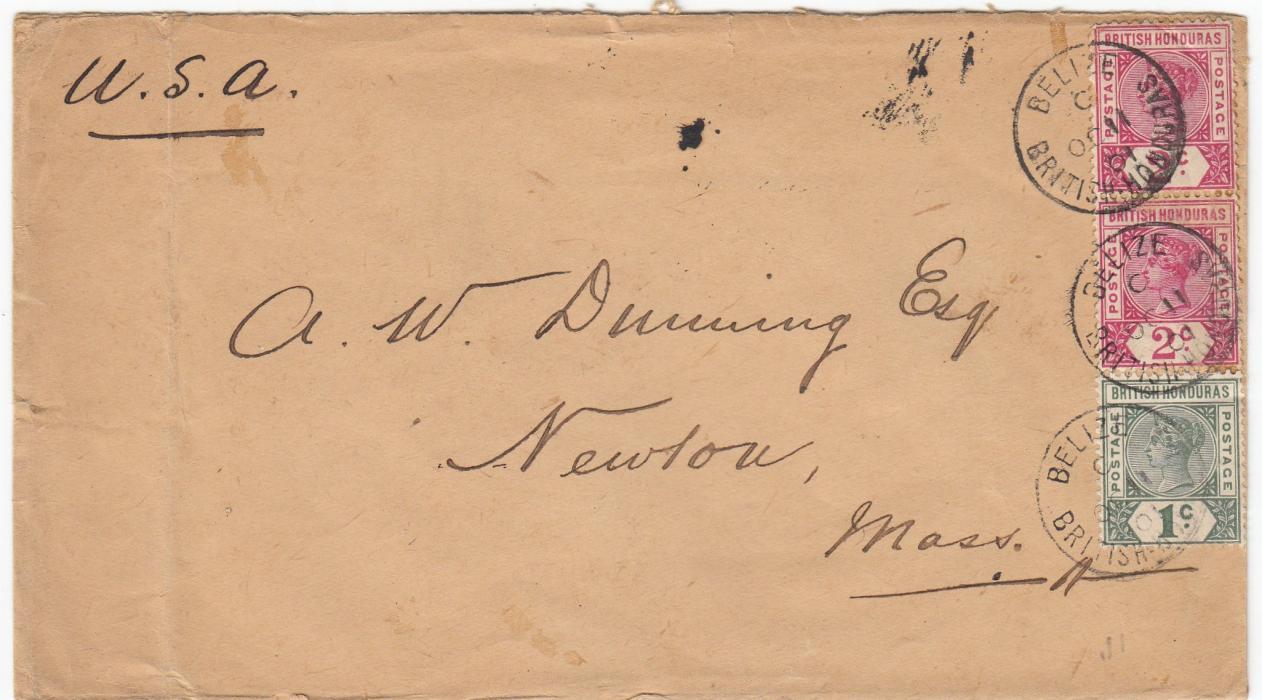 U.S.A.
BRITISH HONDURAS
POSTAGE POSTAGE
BELIZE
C
OC 11
01
BRITISH-HONDURAS
BRITISH HONDURAS
POSTAGE POSTAGE
2c.
BELIZE
C
OC 11
01
BRITISH-HONDURAS
A. W. Dunning Esq
BRITISH HONDURAS
POSTAGE POSTAGE
1c.
BELIZE
C
01
BRITISH-
Newton,
Mass.